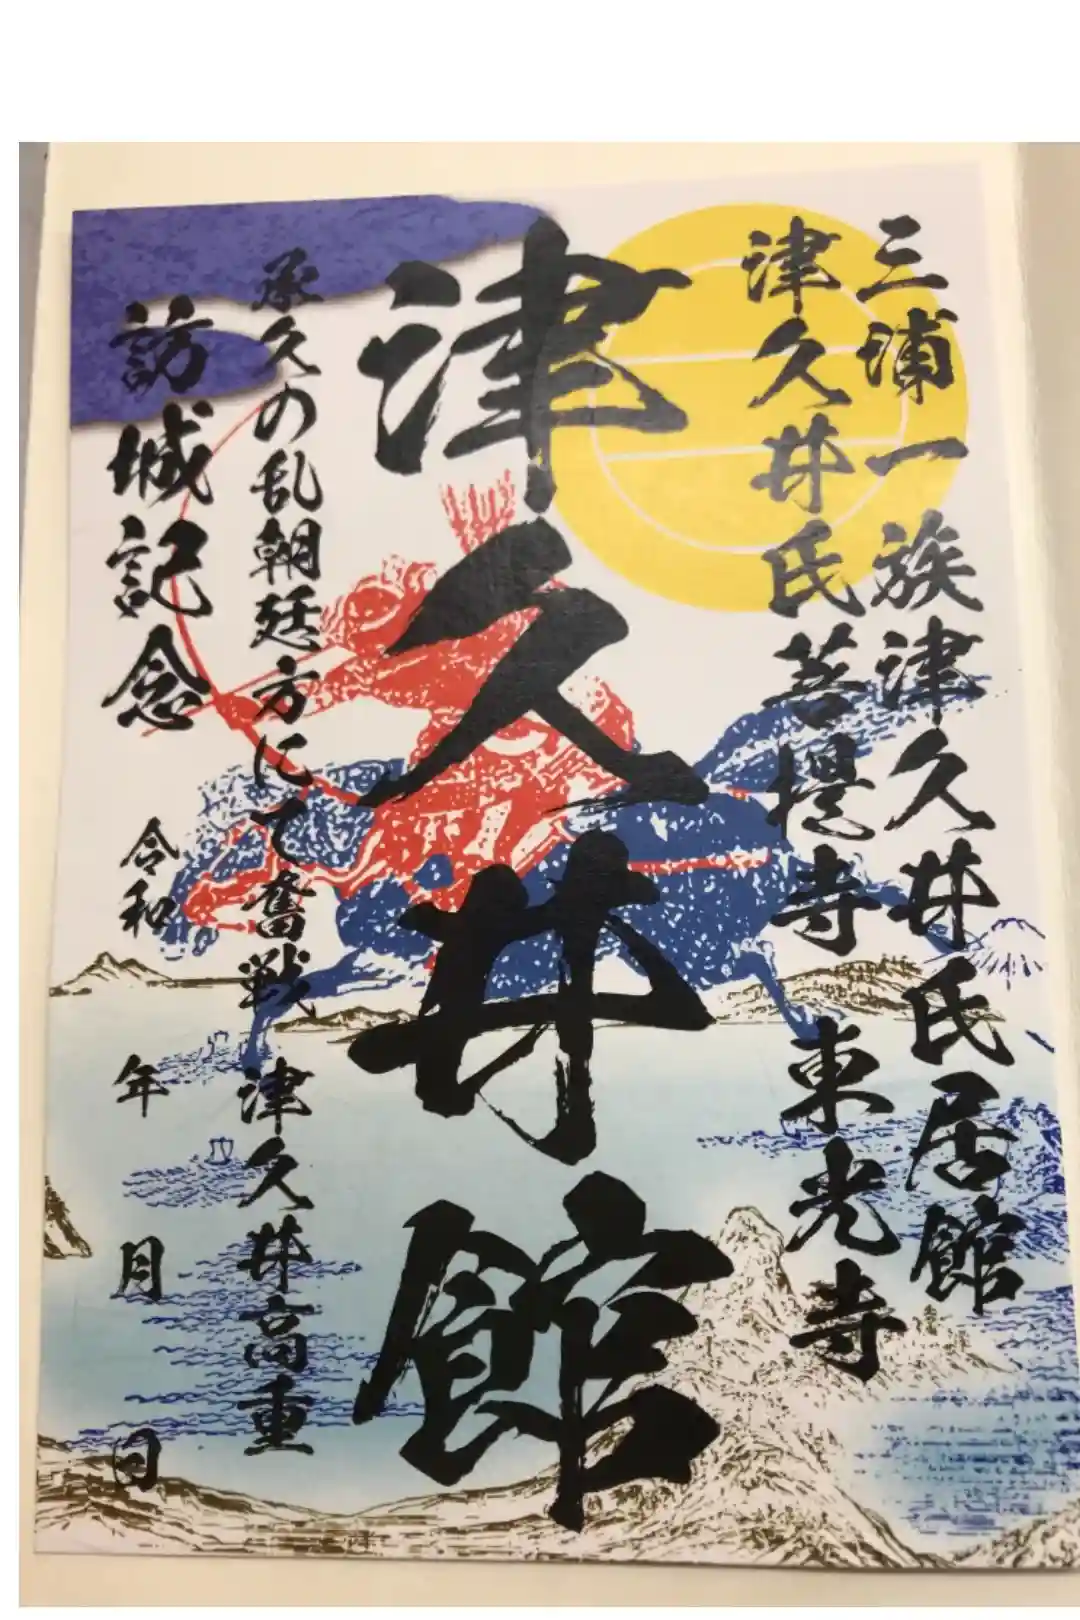 三浦一族津久井氏居館
津久井氏菩提寺 東光寺
津久井館
承久の乱朝廷方にて奮戦 津久井高重
訪城記念
令和 年 月 日